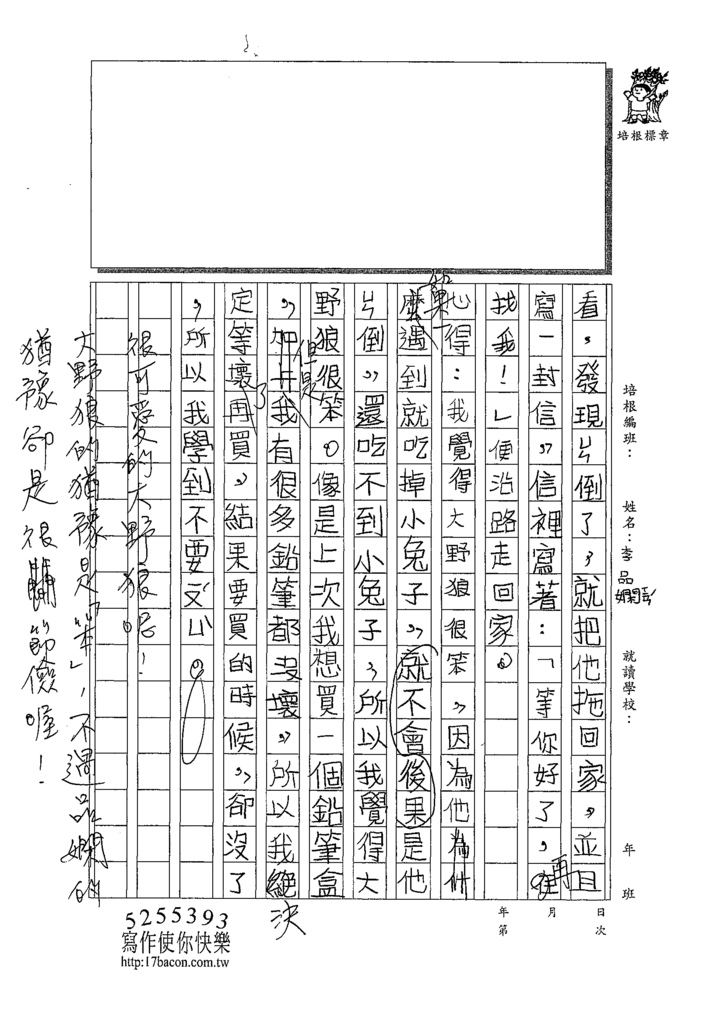 培根標章
培根編班：
姓名：李品嫻
就讀學校：
年 班
年 月 日
第 次
看，發現ㄐ倒了，就把他拖回家，並且
寫一封信，信裡寫著：「等你好了，再
找我！」便沿路走回家。
心得：我覺得大野狼很笨，因為他為什
麼遇到就吃掉小兔子，就不會後果是他
ㄐ倒，還吃不到小兔子，所以我覺得大
野狼很笨。像是上次我想買一個鉛筆盒
，但是我有很多鉛筆都沒壞，所以我絕
定等壞了再買，結果要買的時候，卻沒了
，所以我學到不要ㄆㄧㄣ心。
很可愛的大野狼呢！
大野狼的猶豫是「笨」，不過品嫻的
猶豫卻是很節儉喔！
決
5255393
寫作使你快樂
http:17bacon.com.tw